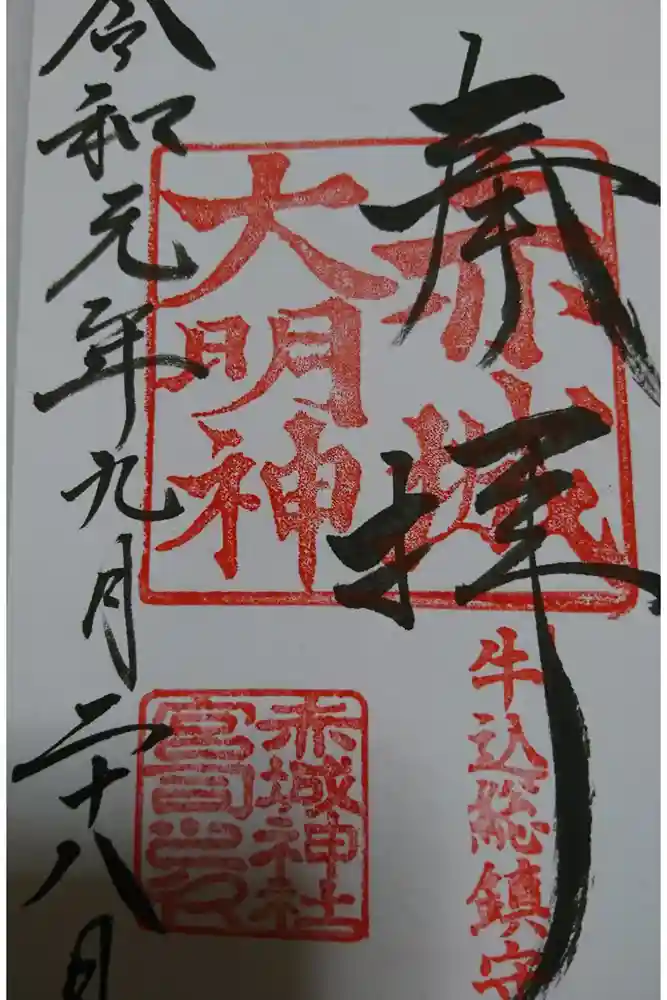 奉拝
赤城
大明神
牛込総鎮守
赤城神社
宮司之印
令和元年九月二十八日